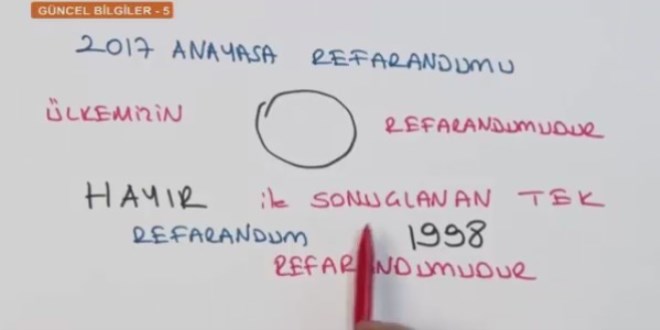 GÜNCEL BİLGİLER - 5
2017 ANAYASA REFARANDUMU
ÜLKEMİZİN REFARANDUMUDUR
HAYIR ile SONUÇLANAN TEK
REFARANDUM 1998
REFARANDUMUDUR